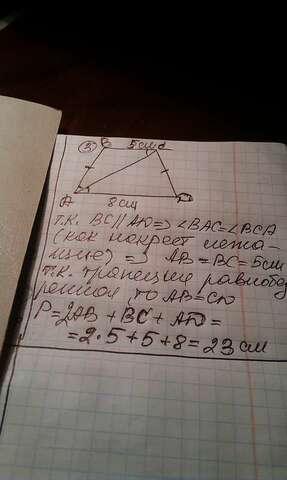 ③ B 5см C
A 8см D
т.к. BC||AD=> ∠BAC=∠BCA
(как накрест лежа-
щие) => AB=BC=5см
т.к. трапеция равнобед
ренная, то AB=CD
P=2AB+BC+AD=
=2·5+5+8=23 см